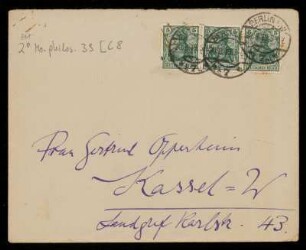 2° Ms. philos. 33 [C8
BERLIN
Frau Gertrud Oppenheim
Kassel = W
Landgraf Karlstr. 43.